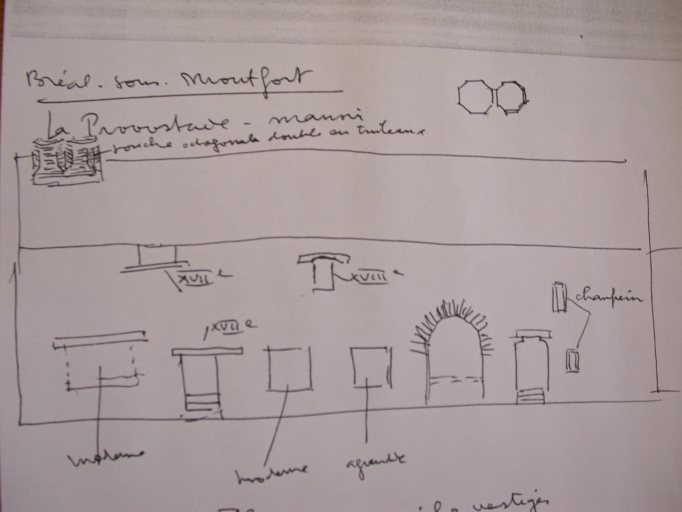 Bréal. sous. Montfort
La Provostais - manoir
souche octogonale double en tuileaux
XVIIe
XVIIIe
XVIIe
chanfrein
moderne
moderne
agrandie
vestiges